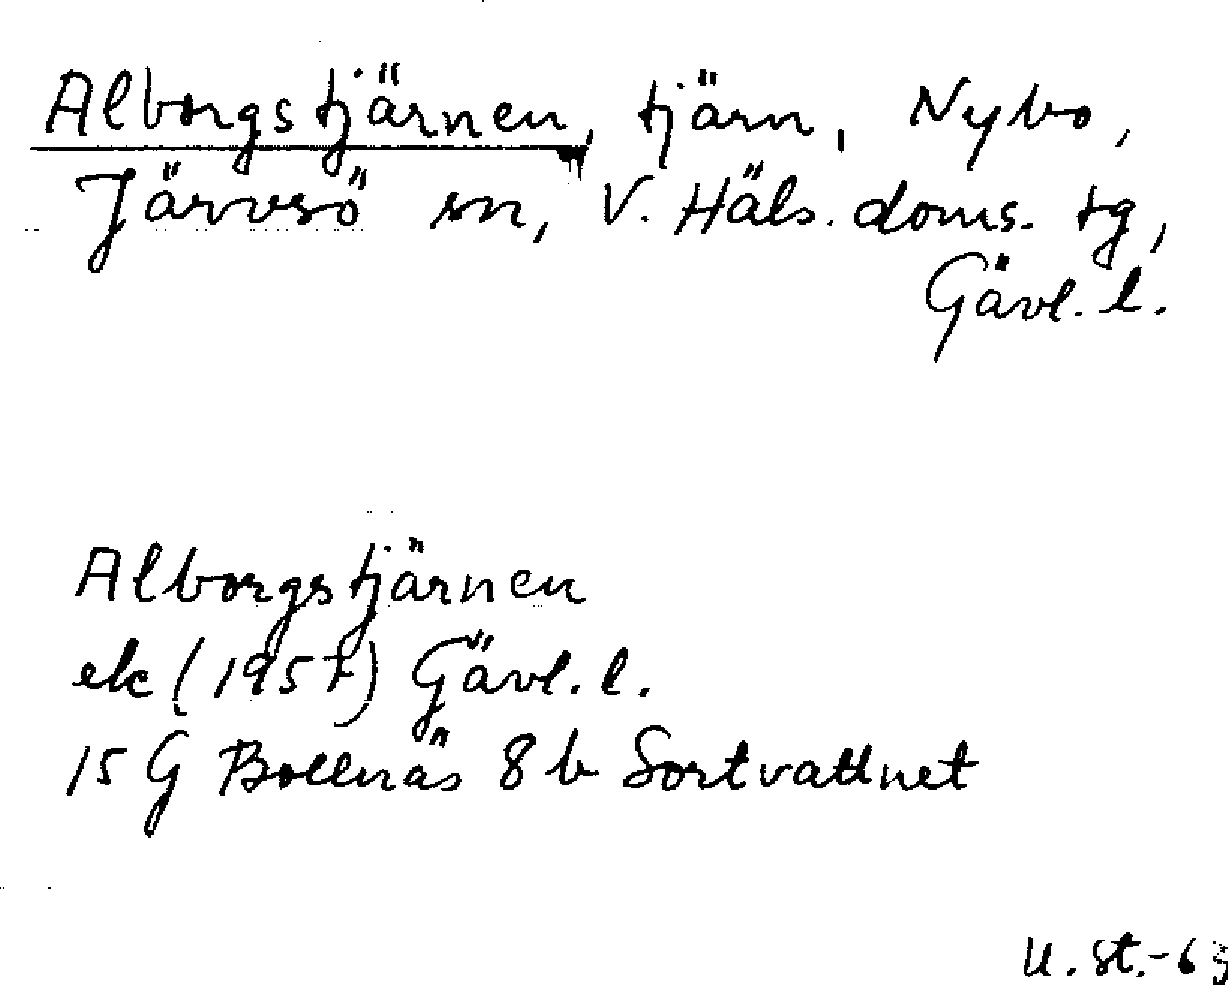 Alborgstjärnen, tjärn, Nybo,
Järvsö sn, V. Häls. doms. tg,
Gävl. l.
Alborgstjärnen
ek (1957) Gävl. l.
15 G Bollnäs 8 b Sortvattnet
U. St.-